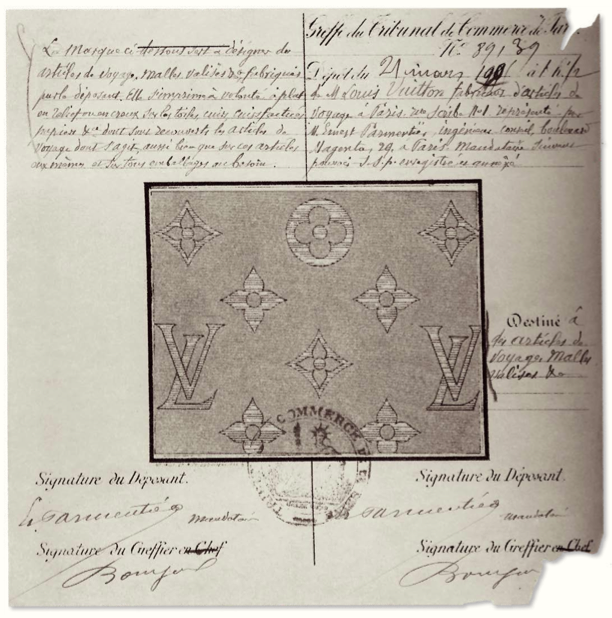 La Marque ci-dessous sert à désigner des
articles de voyage, malles, valises &a fabriqués
par le déposant. Elle s'imprime à volonté à plat
en relief ou en creux sur les toiles, cuirs, cuirs factices
papiers &a dont sont recouverts les articles de
voyage dont s'agit, aussi bien que sur ces articles
eux mêmes et sur tous emballages au besoin.
Greffe du Tribunal de Commerce de
No 89139
Dépôt du 21 mars à
de M Louis Vuitton fabricant d'articles de
voyage à Paris, rue Scribe No 1 représenté par
M. Ernest Parmentier, ingénieur conseil, boulevard
Magenta, 29, à Paris. Mandataire suivant
pouvoir S.S.p. enregistré et annexé
LV
LV
Destiné à
des articles de
voyages Malles
valises &a
COMMERCE DE LA SEINE
Signature du Déposant.
Parmentier mandataire
Signature du Greffier en Chef
Signature du Déposant.
Parmentier mandataire
Signature du Greffier en Chef